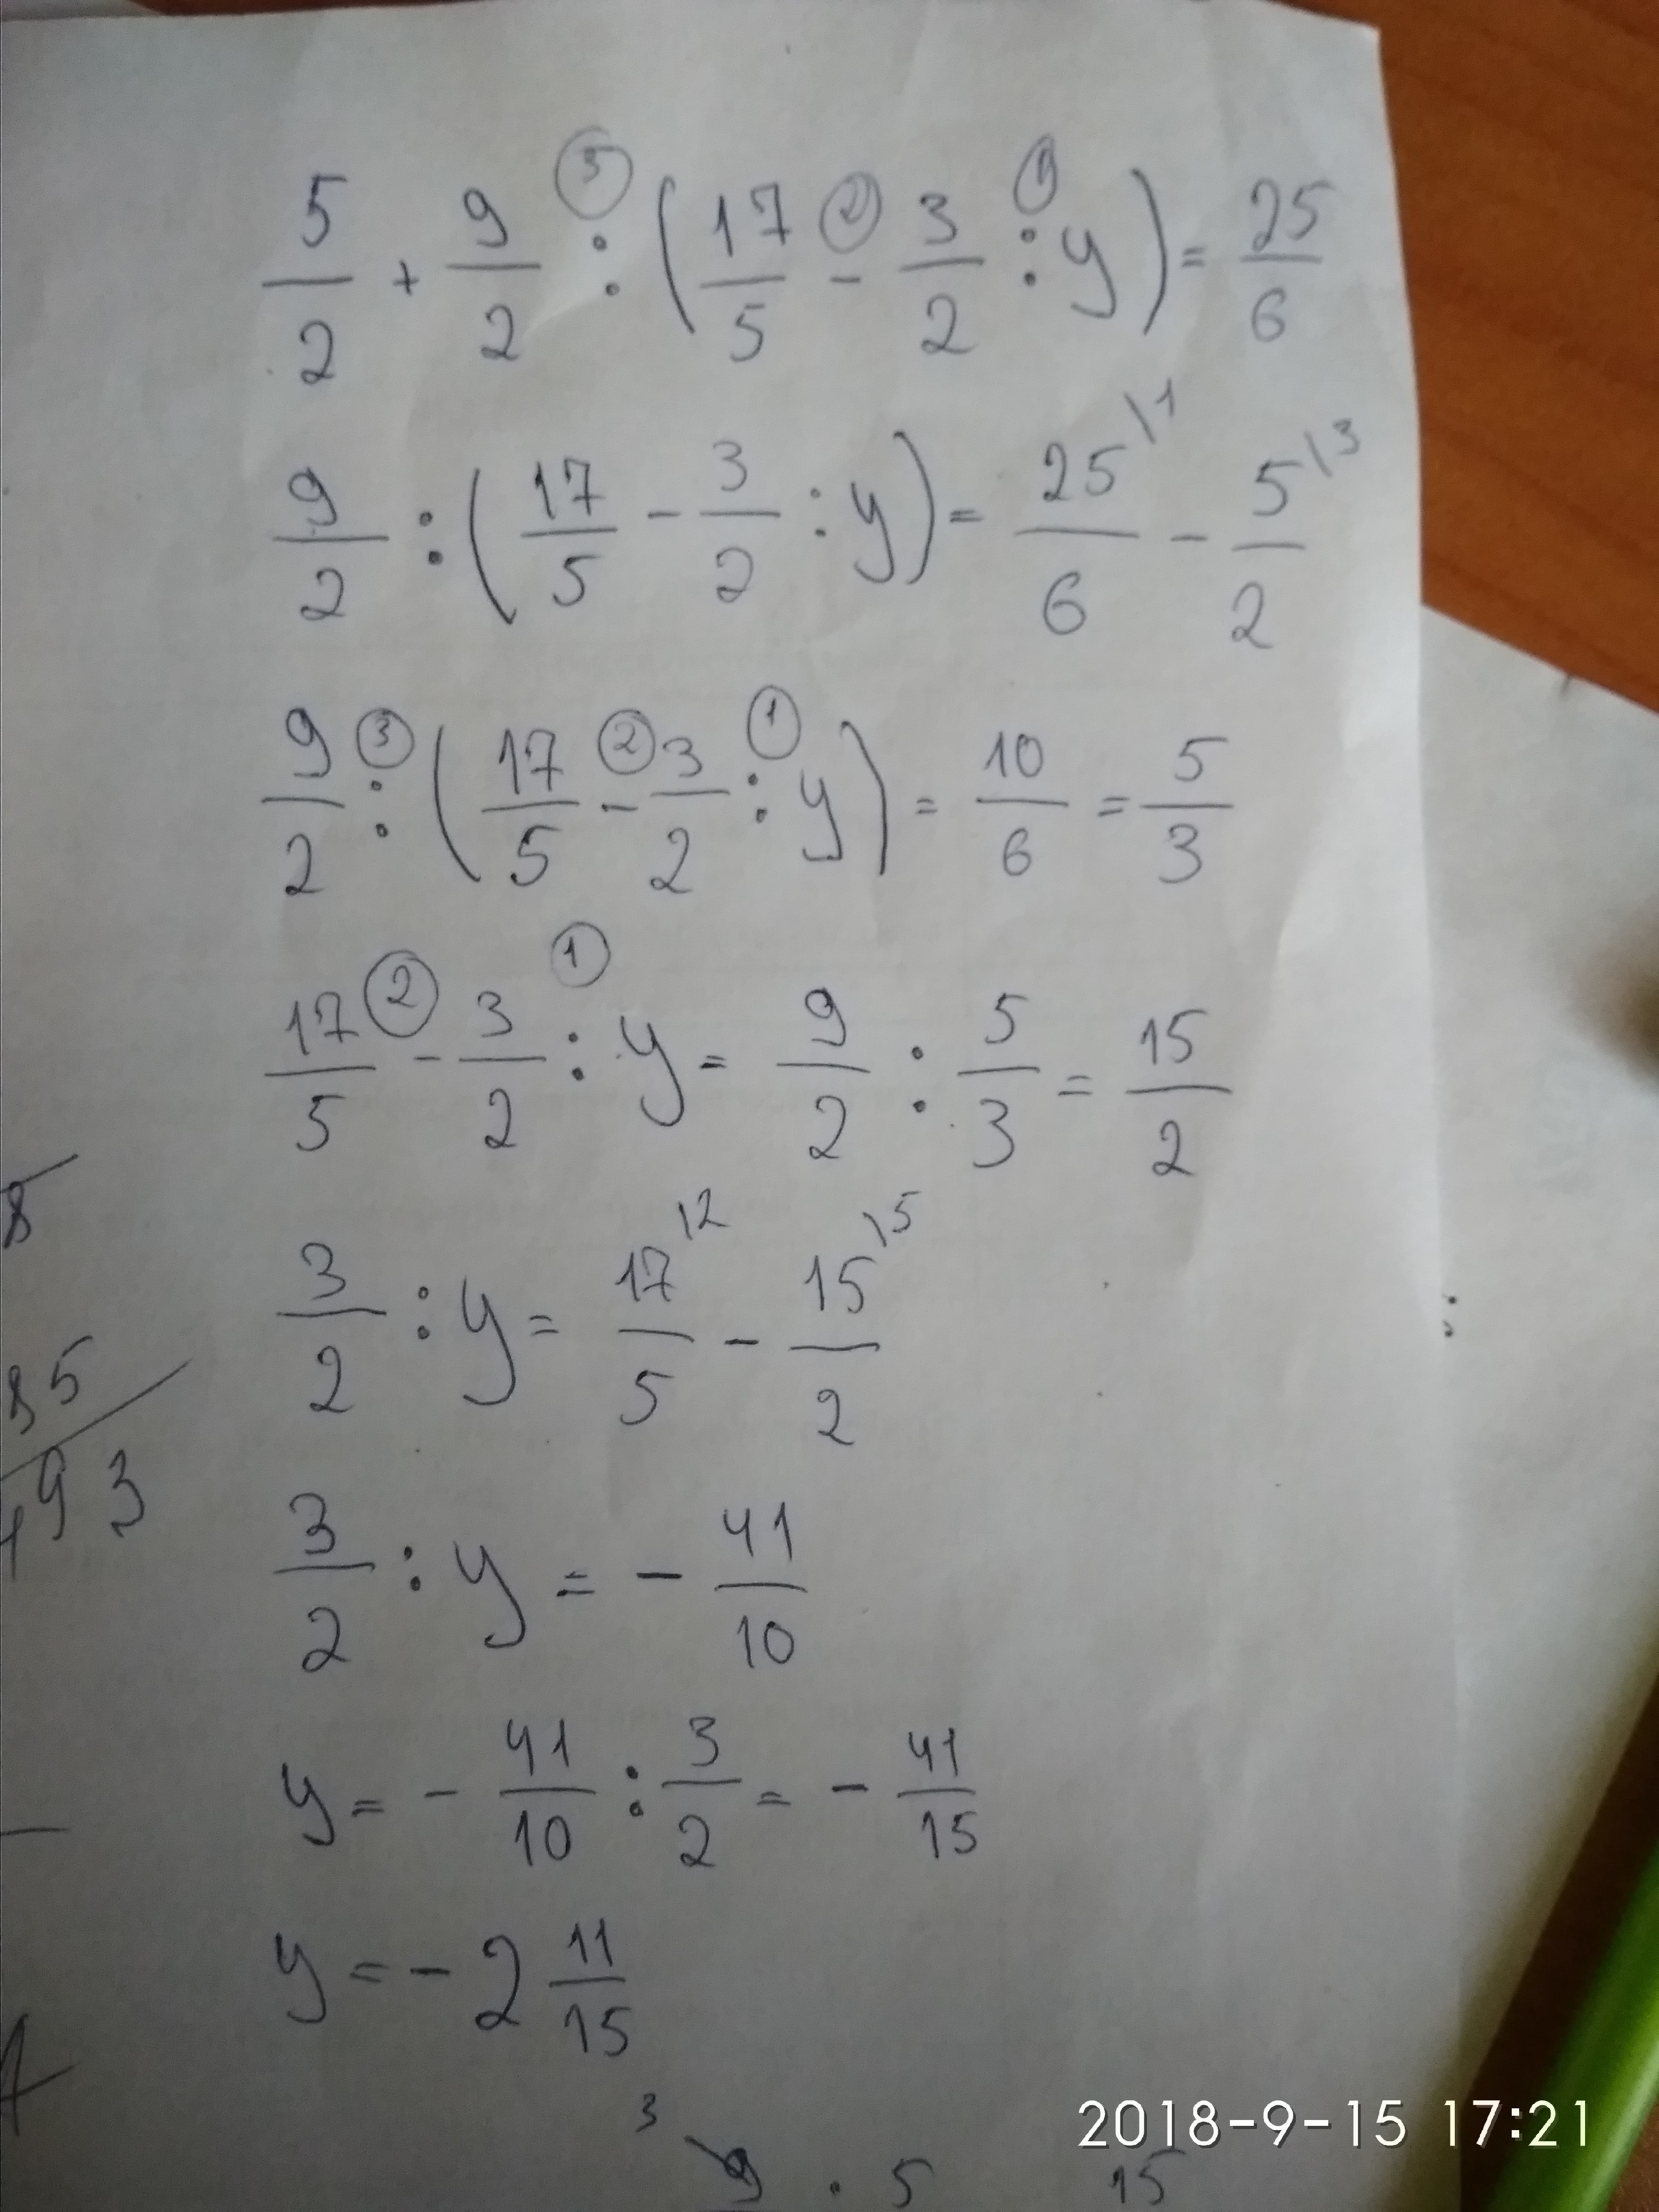 5/2 + 9/2 ③ : (17/5 ② - 3/2 ① : y) = 25/6
9/2 : (17/5 - 3/2 : y) = 25\1/6 - 5\3/2
9/2 ③ : (17/5 ② - 3/2 ① : y) = 10/6 = 5/3
17/5 ② - 3/2 ① : y = 9/2 : 5/3 = 15/2
8
3/2 : y = 17\2/5 - 15\5/2
85
493
3/2 : y = - 41/10
y = - 41/10 : 3/2 = - 41/15
y = - 2 11/15
3
9 · 5 15
2018-9-15 17:21